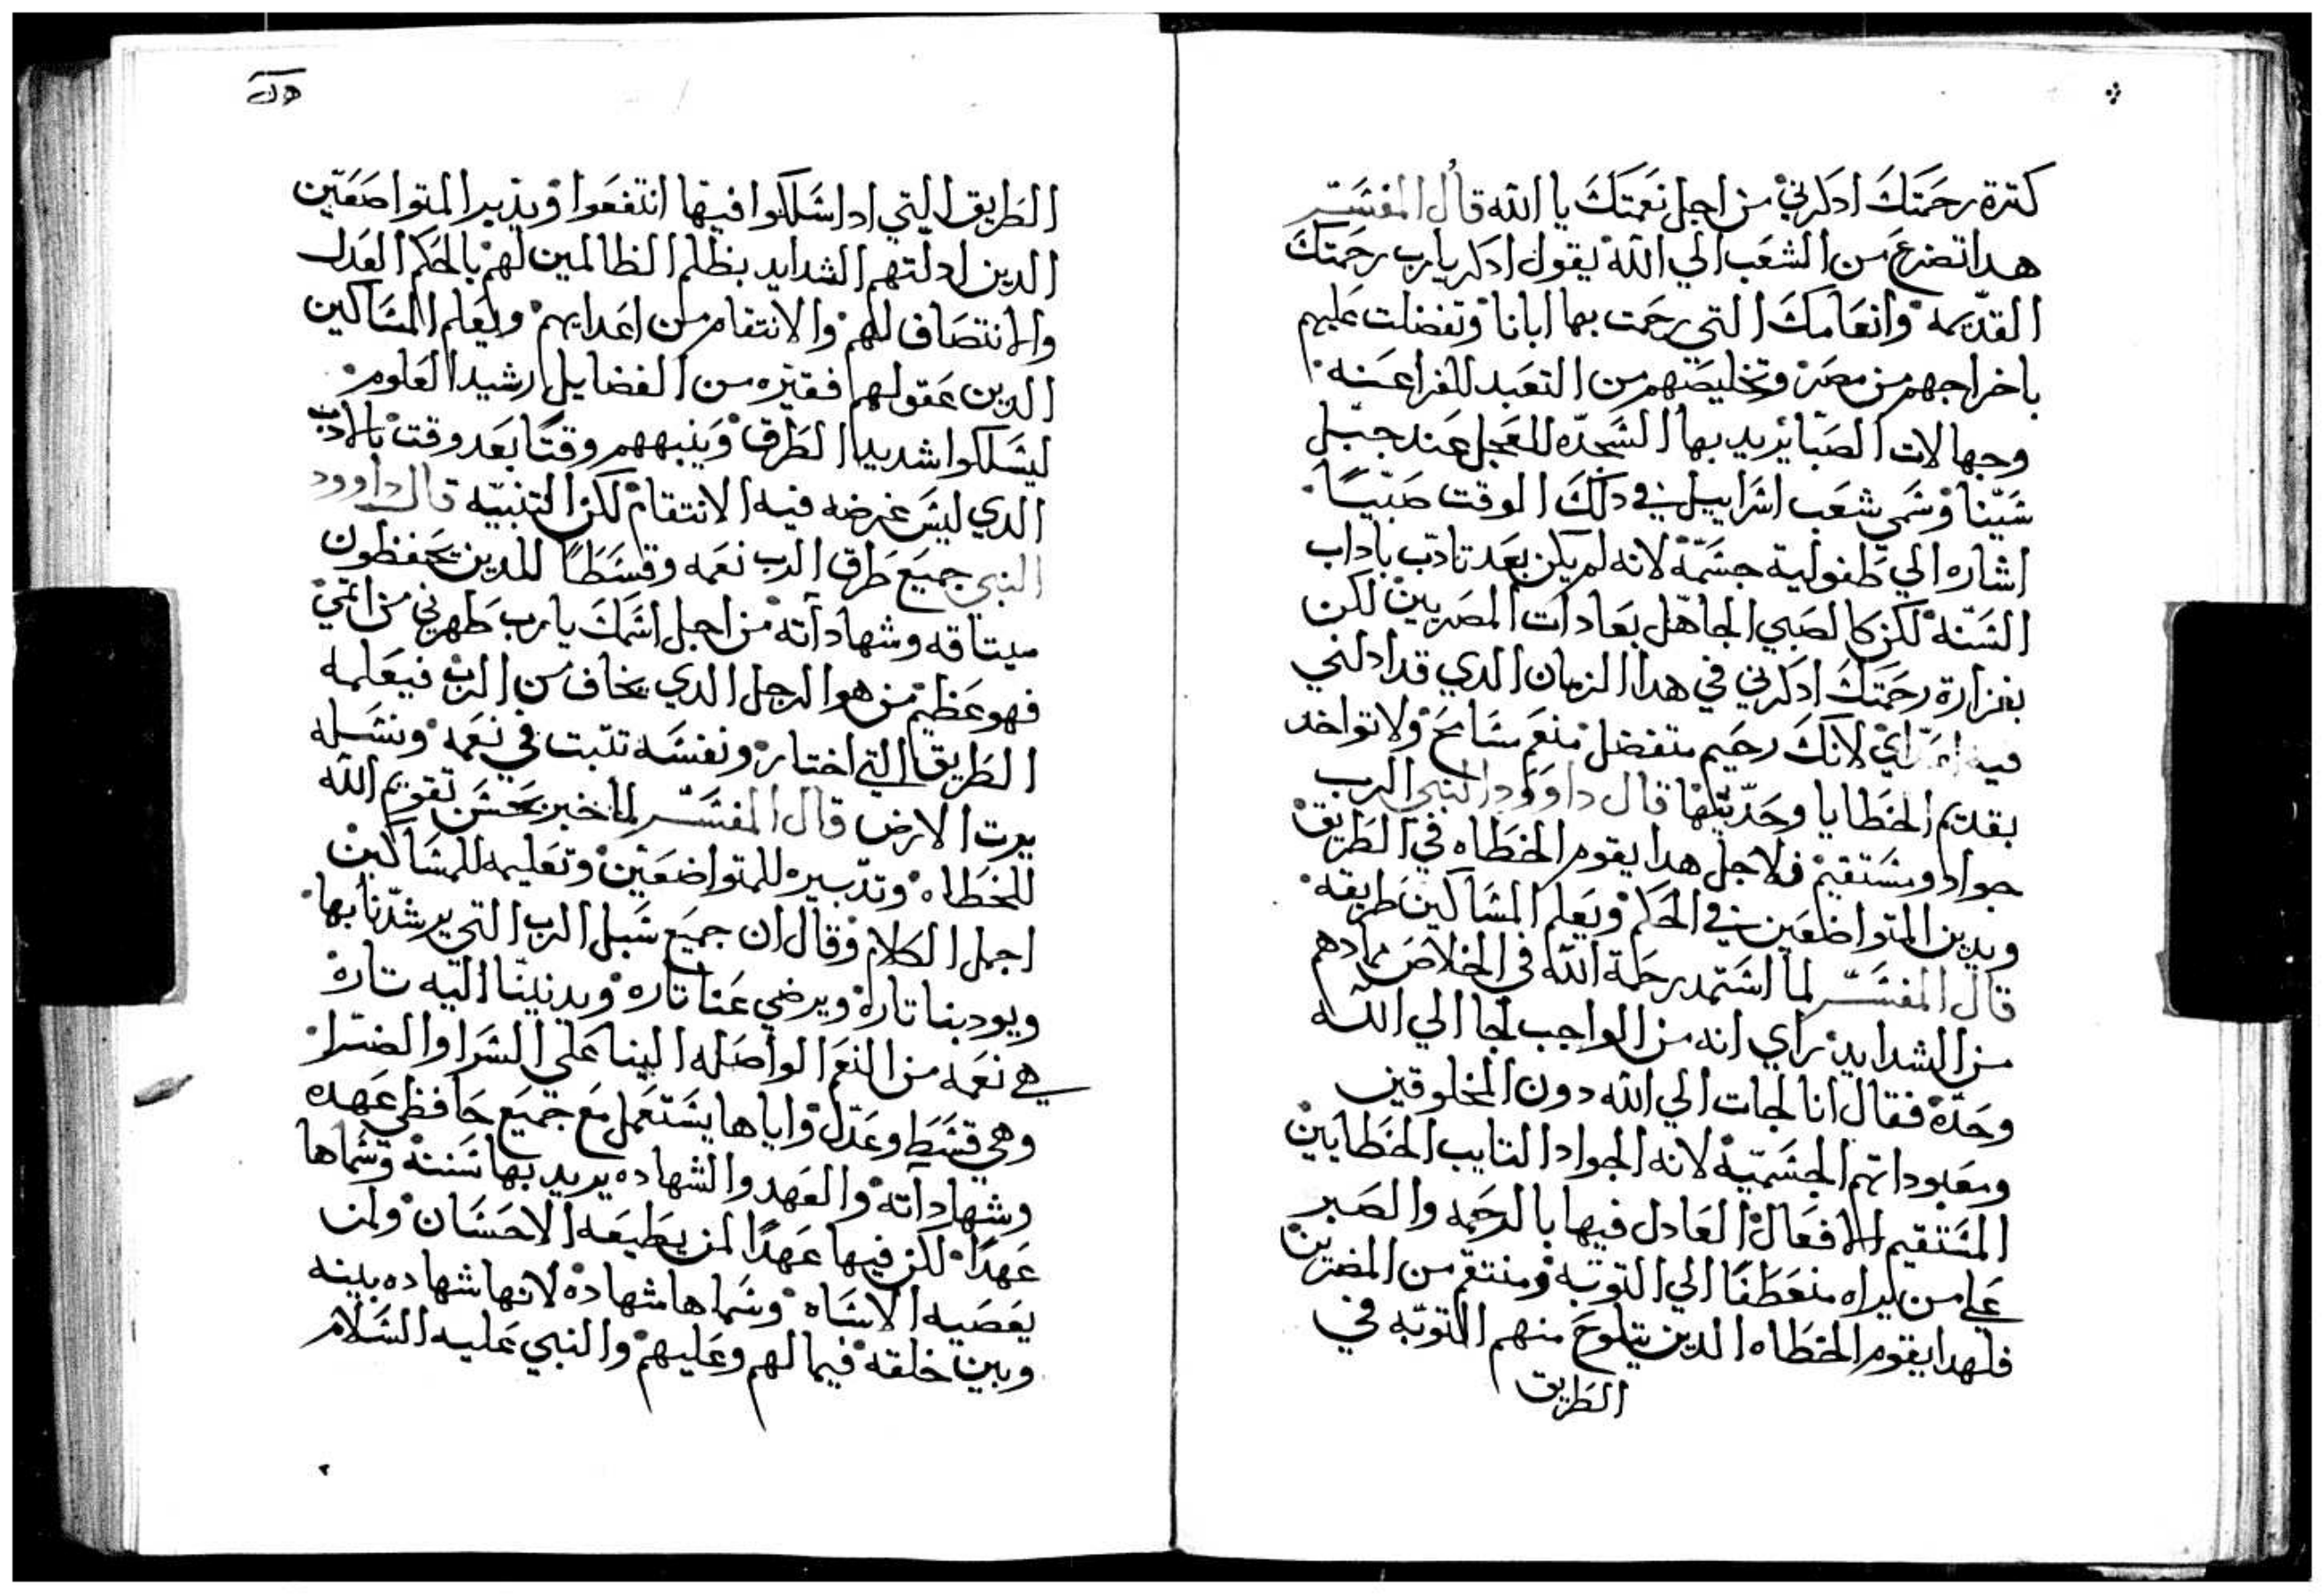 كترة رحمتك ادكرني من اجل نعمتك يا الله قال المفسر
هدا تضرع من الشعب الي الله يقول ادكر يارب رحمتك
القديمه وانعامك التي رحمت بها ابانا وتفضلت عليهم
باخراجهم من مصر وتخليصهم من التعبد للفراعنه
وجهالات الصبا يريد بها السجده للعجل عند جبل
سينا وسمي شعب اسراييل في دلك الوقت صبيا
اشاره الي طفولية جسمه لانه لم يكن بعد تادب باداب
السنه لكن كالصبي الجاهل بعادات المصريين لكن
بغزارة رحمتك ادكرني في هدا الزمان الدي قد ادلني
فيه اعداي لانك رحيم متفضل منعم مسامح ولا تواخد
بقديم الخطايا وحديتها قال داوود النبي الرب
جواد ومستقيم فلاجل هدا يقوم الخطاه في الطريق
ويدين المتواضعين في الحكم ويعلم المساكين طريقه
قال المفسر لما استمد رحمة الله في الخلاص مما دهم
من الشدايد راي انه من الواجب لجا الي الله
وحده فقال انا لجات الي الله دون المخلوقين
ومعبوداتهم الجسميه لانه الجواد التايب الخطايين
المستقيم الافعال العادل فيها بالرحمه والصبر
علي من يراه منعطفا الي التوبه ومنتقم من المضرين
فلهدا يقوم الخطاه الدين يتلوح منهم التوبه في
الطريق
الطريق التي ادا سلكوا فيها انتفعوا ويدير المتواضعين
الدين ادلتهم الشدايد بظلم الظالمين لهم بالحكم العدل
والانتصاف لهم والانتقام من اعدايهم ويعلم المساكين
الدين عقولهم فقيره من الفضايل رشيد العلوم
ليسلكوا شديد الطرق وينبههم وقتا بعد وقت بالادب
الدي ليس غرضه فيه الانتقام لكن التنبيه قال داوود
النبي جميع طرق الرب نعمه وقسطا للدين يحفظون
ميتاقه وشهاداته من اجل اسمك يا رب طهرني من اتمي
فهو عظيم من هو الرجل الدي يخاف من الرب فيعلمه
الطريق التي اختار ونفسه تتبت في نعمه ونسله
يرت الارض قال المفسر لما خبر بحسن تقويم الله
للخطاه وتدبيره للمتواضعين وتعليمه للمساكين
اجمل الكلام وقال ان جميع سبل الرب التي يرشدنا بها
ويودبنا تارة ويرضي عنا تاره ويدنينا اليه تارة
هي نعمه من النعم الواصله الينا علي السرا والضرا
وهي قسط وعدل واياها يستعمل مع جميع حافظي عهده
وشهاداته والعهد والشهاده يريد بها سننه وسماها
عهدا لكن فيها عهدا لمن يطيعه الاحسان ولمن
يعصيه الاساه وسماها شهادة لانها شهاده بينه
وبين خلقه فيما لهم وعليهم والنبي عليه السلام